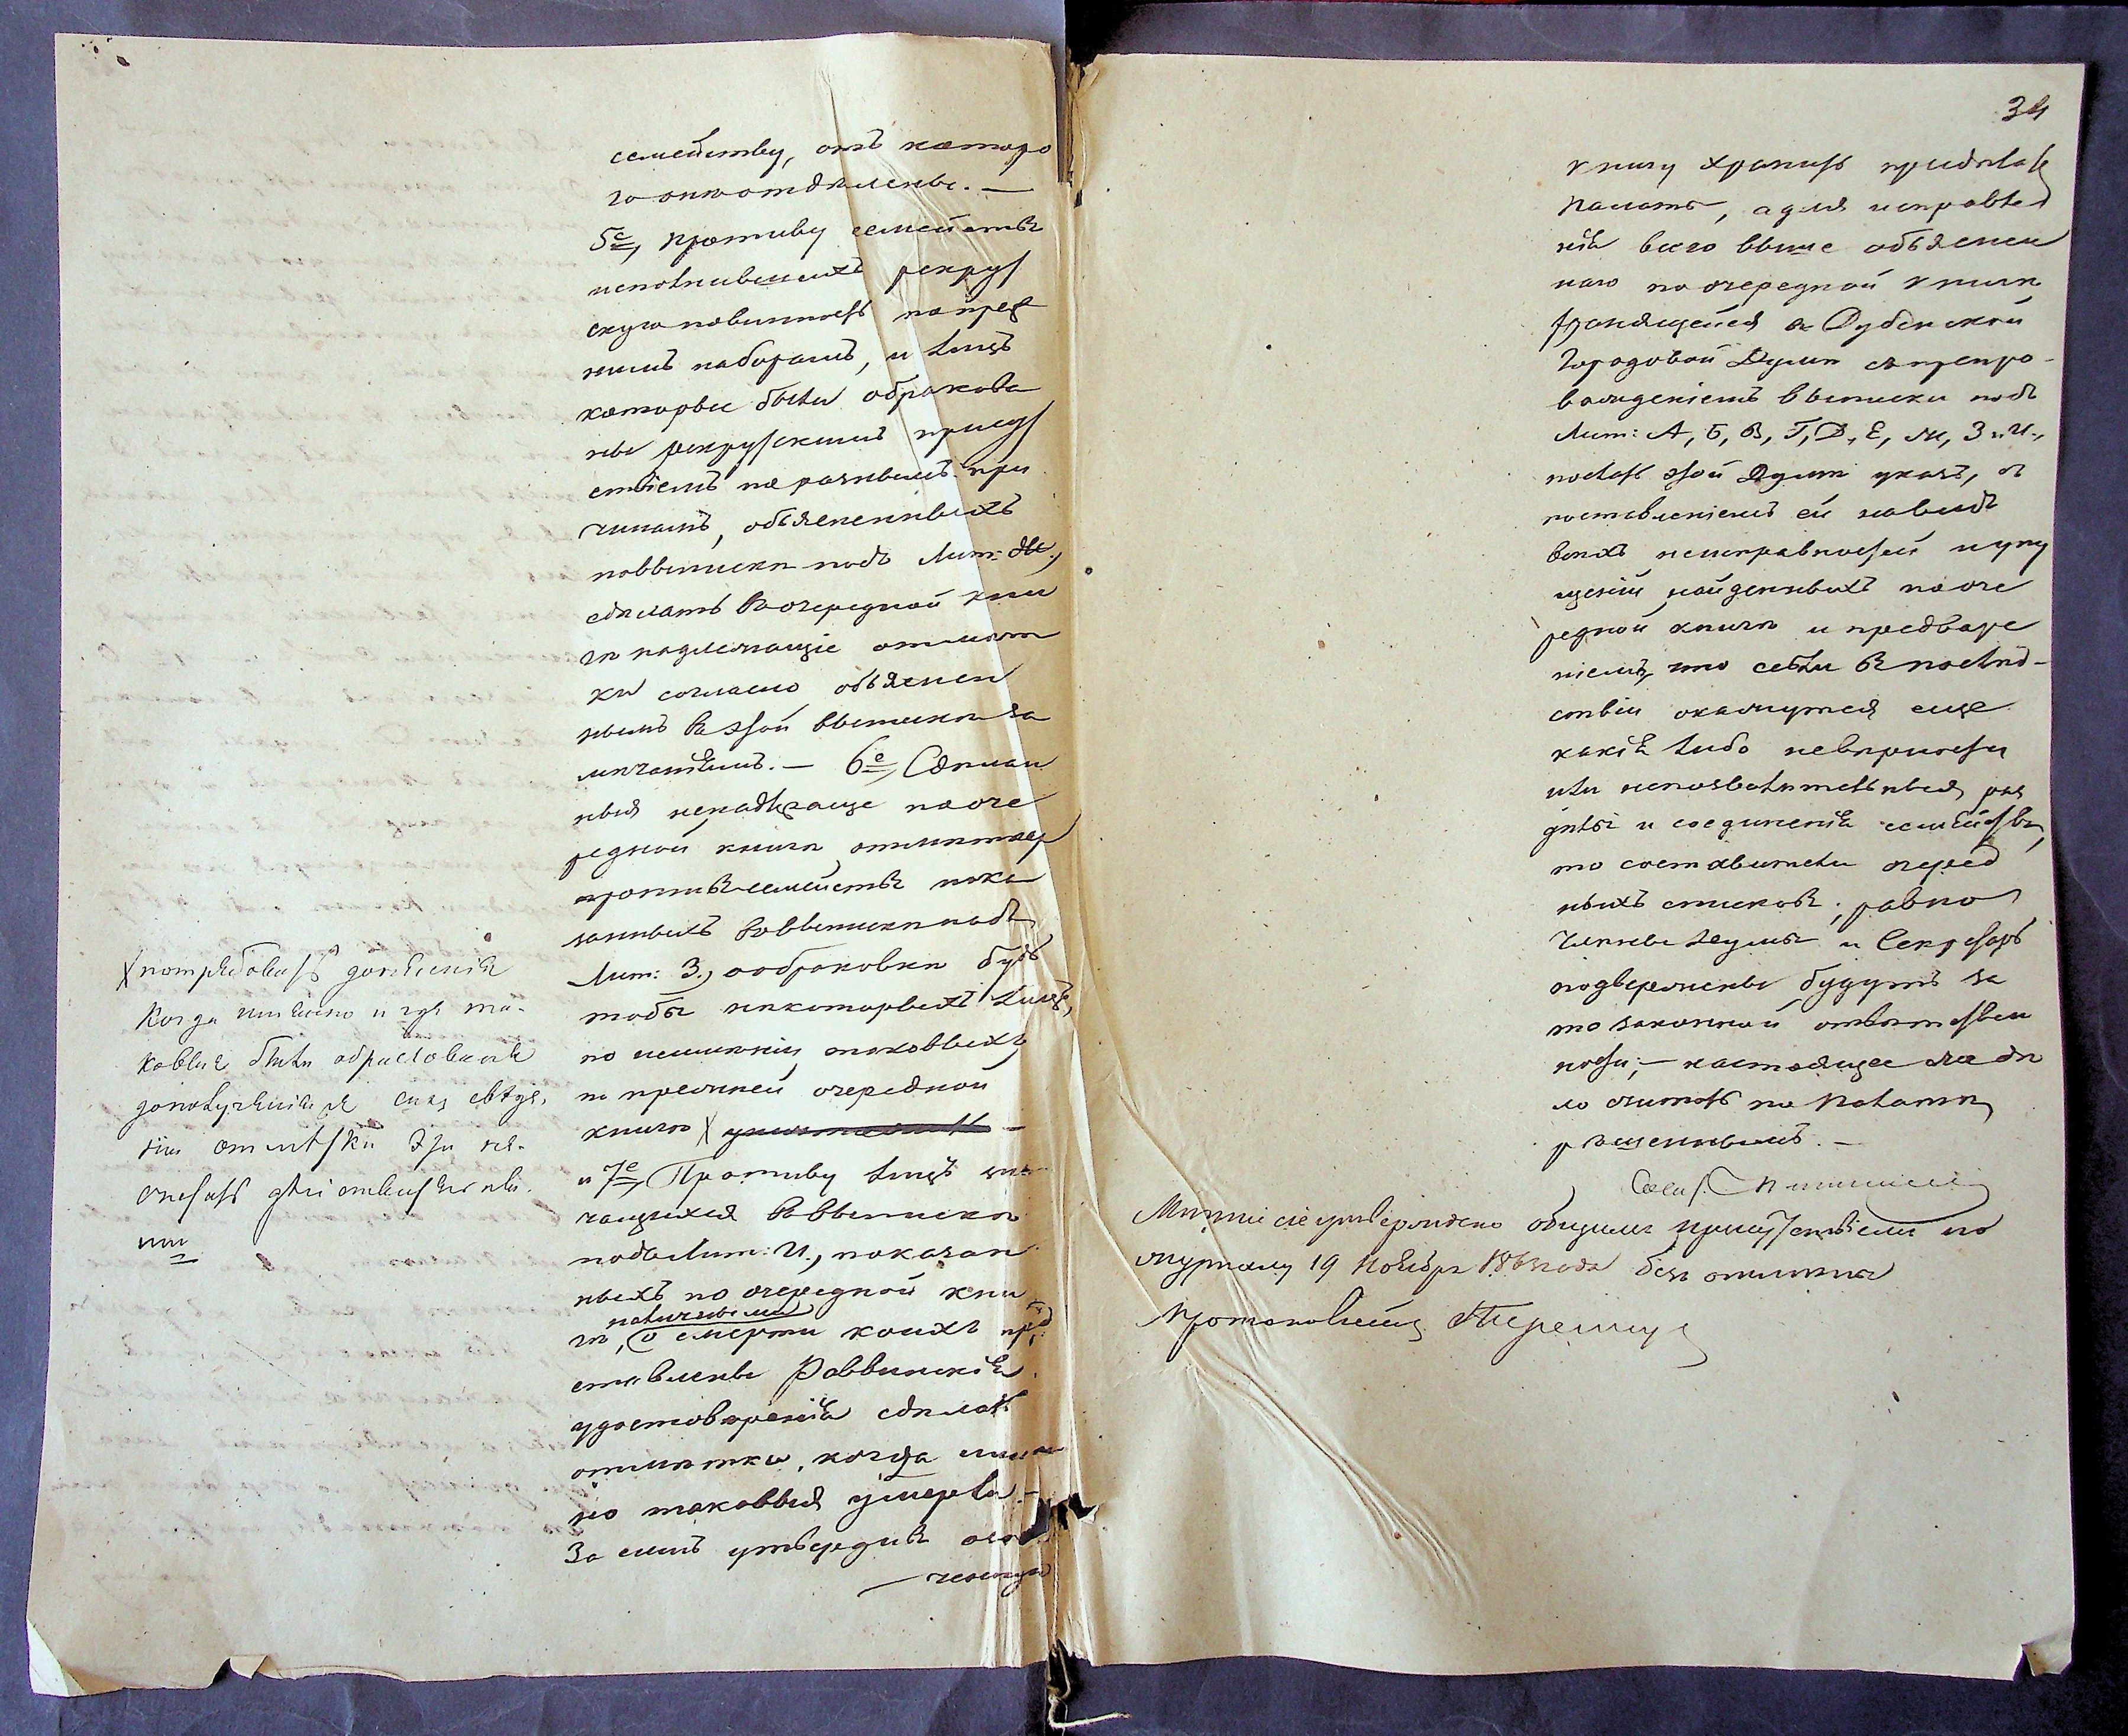 семейству, отъ которо
го они отделены. —
5е, противу семействъ
исполнившихъ рекрут
скую повинность по преж
нимъ наборамъ, и лицъ
которые были обракова
ны рекрутскимъ присут
ствіемъ по разнымъ при
чинамъ, объясненныхъ
в выписке подъ Лит: Ж.,
сделать в очередной кни
ге надлежащіе отмет
ки согласно объяснен
нымъ въ этой выписке за
мечаніямъ. — 6е, Сделан
ныя по оче
редной книге отметке
противъ семействъ пока
занныхъ в выписке подъ
Лит: З., о обраковке буд
тобы некоторыхъ лицъ,
по неименію таковыхъ
по прежней очередной
книге Х
и 7е, Противу лицъ зна
чащихся в выписке
подъ Лит: И., показан
ныхъ по очередной кни
ге наличными, о смерти коихъ пред
ставлены Раввинскіе
удостоверенія сделать
отметки, когда имен
но таковыя умерли. —
За симъ утвердивъ
Х потребовать
когда именно и где та-
ковые были обракованы
отметки эти не
считать действительны
ми
34
книгу хранить при делахъ
Палаты, а для исправле
нія всего выше объяснен
наго по очередной книге
хранящейся в Дубенской
Городовой Думе съ препро-
вожденіемъ выписки подъ
Лит: А, Б, В, Г, Д, Е, Ж, З и И.,
послать этой Думе указъ, съ
поставленіемъ ей на видъ
всехъ неисправностей и упу
щеній найденныхъ по оче
редной книге и предваре
ніемъ, что если в послед-
ствіи окажутся еще
какіе либо неверности
или непозволительныя раз
делы и соединенія семействъ,
то составители очеред
ныхъ списковъ, равно
Члены Думы и Секретарь
подвержены будутъ за
то законной ответствен
ности; — настоящее же де
ло считать по Палате
решеннымъ. —
Мненіе сіе утверждено общимъ присутствіемъ по
журналу 19 Ноября года безъ отмены